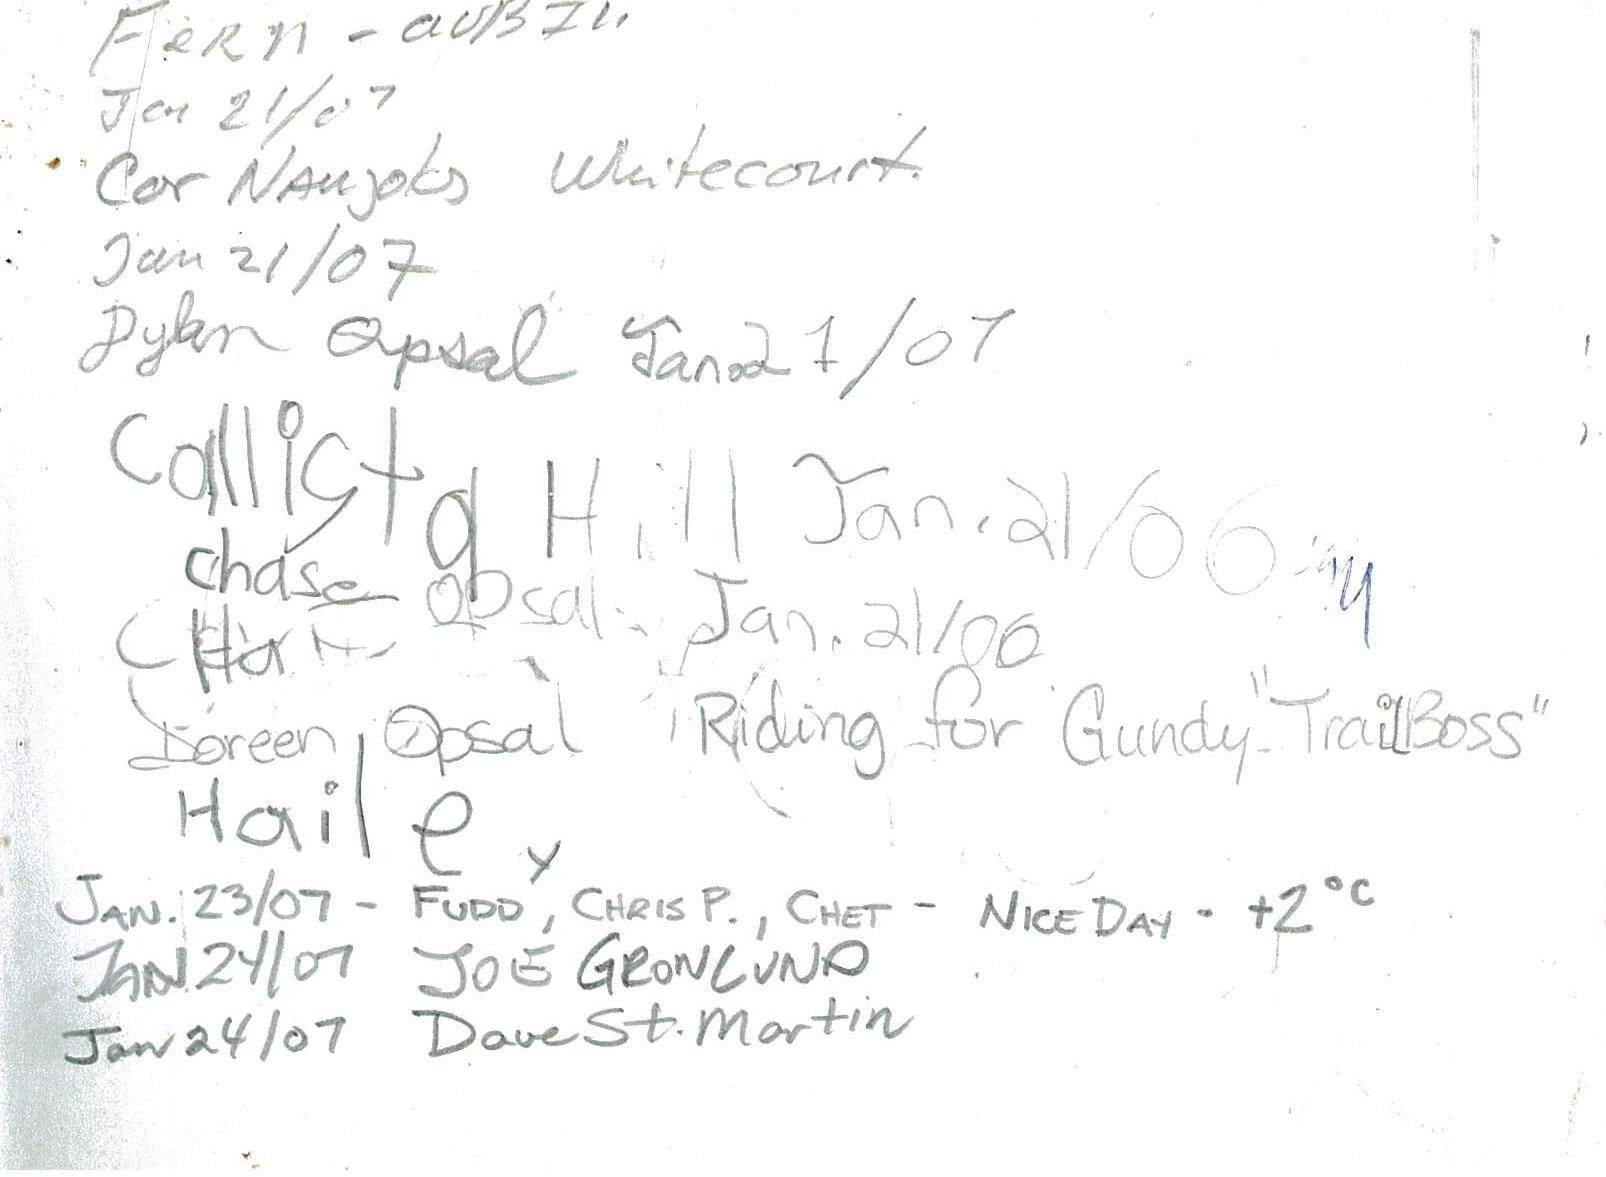 Fern - aubin
Jan 21/07
Cor Naujoks Whitecourt.
Jan 21/07
Dylan Opsal Jan 21/07
Callista Hill Jan. 21/06
chase Opsal. Jan. 21/06
Doreen Opsal Riding for Gundy "TrailBoss"
Hailey
JAN. 23/07 - FUDD, CHRIS P., CHET - NICE DAY - +2°C
JAN 24/07 JOE GRONLUND
Jan 24/07 Dave St. Martin